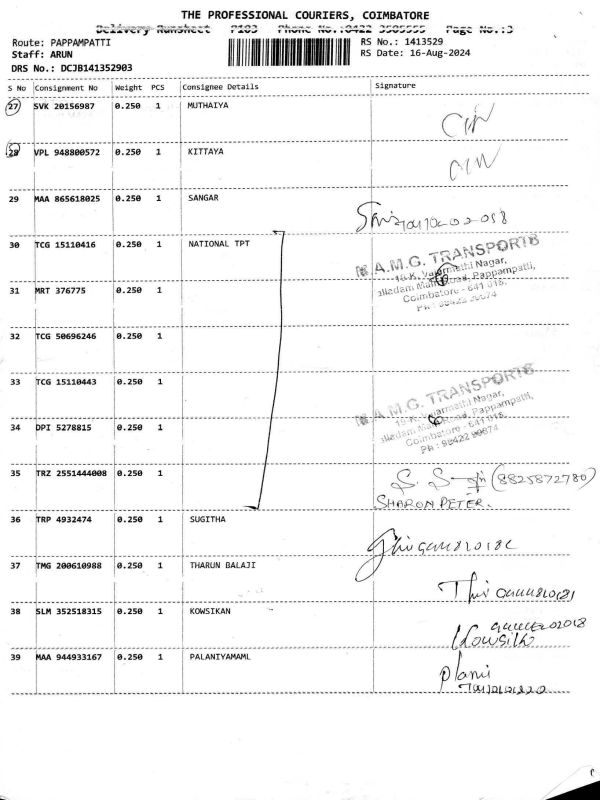 THE PROFESSIONAL COURIERS, COIMBATORE
Delivery Runsheet P183 Phone No.:0422 3505555 Page No.:3
Route: PAPPAMPATTI
RS No.: 1413529
Staff: ARUN
RS Date: 16-Aug-2024
DRS No.: DCJB141352903
S No Consignment No Weight PCS Consignee Details Signature
27 SVK 20156987 0.250 1 MUTHAIYA
28 VPL 948800572 0.250 1 KITTAYA
29 MAA 865618025 0.250 1 SANGAR
30 TCG 15110416 0.250 1 NATIONAL TPT
A.M.G. TRANSPORTS
Nagar,
Pappampatti,
Coimbatore - 641 016.
31 MRT 376775 0.250 1
32 TCG 50696246 0.250 1
33 TCG 15110443 0.250 1
A.M.G. TRANSPORTS
Nagar,
Pappampatti,
Coimbatore - 641 016.
34 DPI 5278815 0.250 1
35 TRZ 2551444008 0.250 1
(8825872780)
SHARON PETER.
36 TRP 4932474 0.250 1 SUGITHA
37 TMG 200610988 0.250 1 THARUN BALAJI
38 SLM 352518315 0.250 1 KOWSIKAN
39 MAA 944933167 0.250 1 PALANIYAMAML